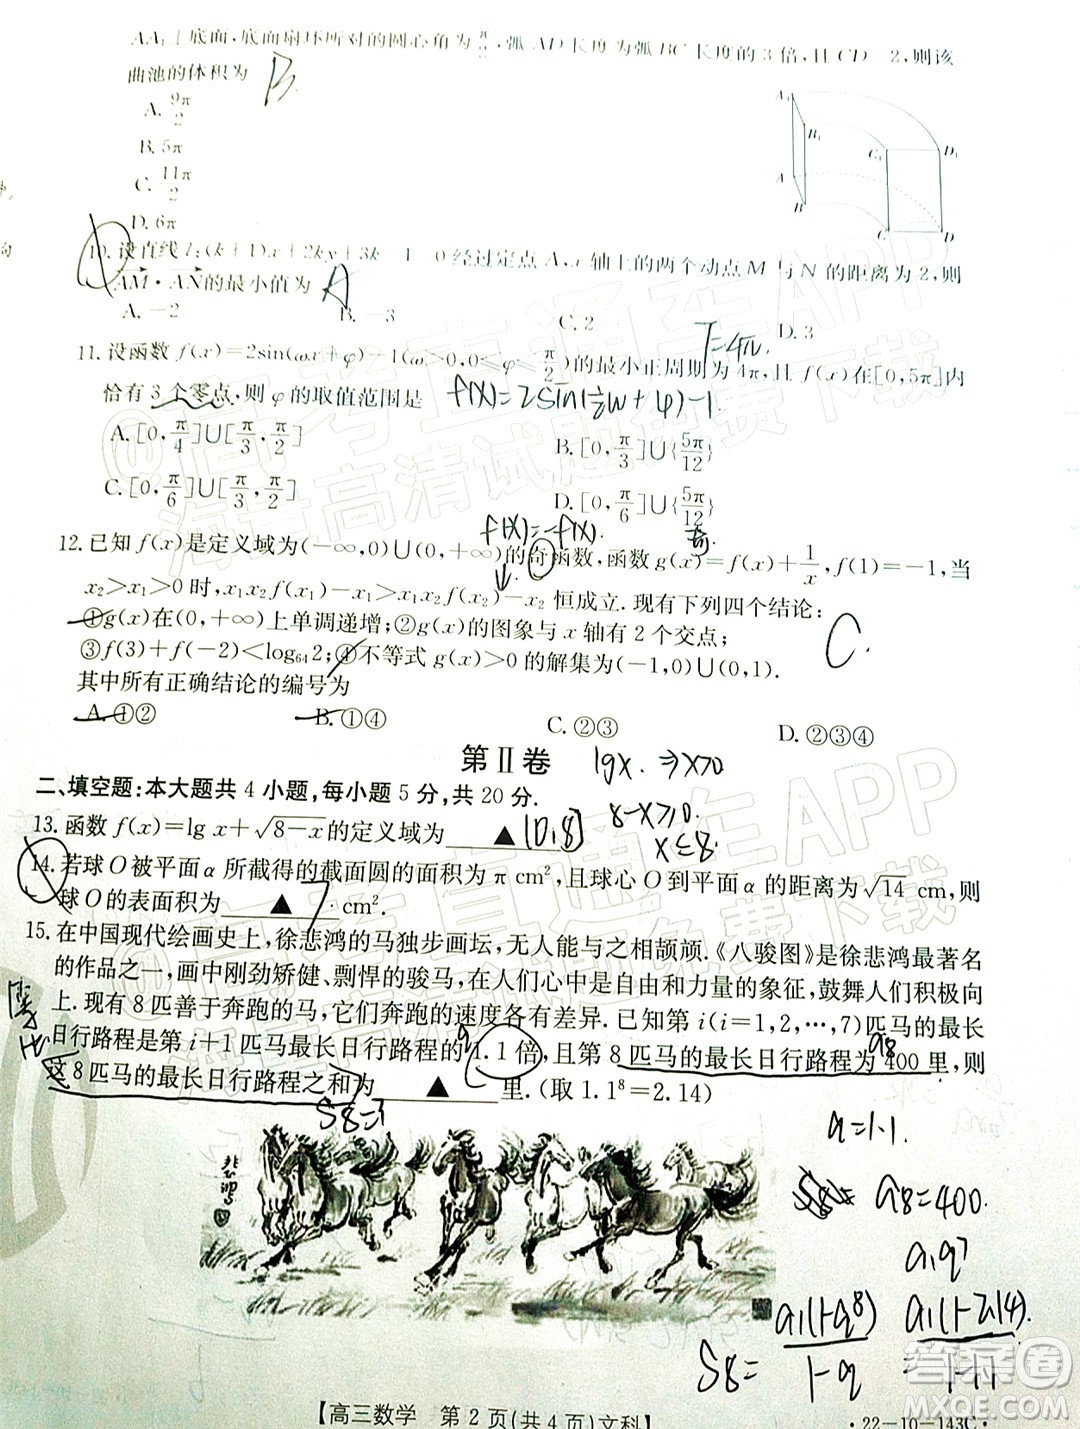 AA₁⊥底面,底面扇环所对的圆心角为π/2,弧AD长度为弧BC长度的3倍,且CD=2,则该
曲池的体积为 B.
A. 9π/2
B. 5π
C. 11π/2
D. 6π
A₁
B₁
C₁
D₁
A
B
C
D
10. 设直线l:(k+1)x+2ky+3k-1=0经过定点A,x轴上的两个动点M与N的距离为2,则
AM·AN的最小值为 A
A. -2
B. -3
C. 2
D. 3
T=4π.
11. 设函数f(x)=2sin(ωx+φ)-1(ω>0,0≤φ≤π/2)的最小正周期为4π,且f(x)在[0,5π]内
恰有3个零点,则φ的取值范围是 f(x)=2sin(½w+φ)-1.
A. [0,π/4]∪[π/3,π/2]
B. [0,π/3]∪{5π/12}
C. [0,π/6]∪[π/3,π/2]
D. [0,π/6]∪{5π/12}
f(x)=-f(x).
奇
12. 已知f(x)是定义域为(-∞,0)∪(0,+∞)的奇函数,函数g(x)=f(x)+1/x,f(1)=-1,当
x₂>x₁>0时,x₁x₂f(x₁)-x₁>x₁x₂f(x₂)-x₂恒成立.现有下列四个结论:
①g(x)在(0,+∞)上单调递增;②g(x)的图象与x轴有2个交点;
③f(3)+f(-2)<log₆₄2;④不等式g(x)>0的解集为(-1,0)∪(0,1).
C.
其中所有正确结论的编号为
A. ①②
B. ①④
C. ②③
D. ②③④
第Ⅱ卷
lgx. ⇒x>0
二、填空题:本大题共4小题,每小题5分,共20分.
8-x≥0.
13. 函数f(x)=lg x+√(8-x)的定义域为 ▲ (0,8]
x≤8.
14. 若球O被平面α所截得的截面圆的面积为π cm²,且球心O到平面α的距离为√14 cm,则
球O的表面积为 ▲ cm².
15. 在中国现代绘画史上,徐悲鸿的马独步画坛,无人能与之相颉颃.《八骏图》是徐悲鸿最著名
的作品之一,画中刚劲矫健、剽悍的骏马,在人们心中是自由和力量的象征,鼓舞人们积极向
上.现有8匹善于奔跑的马,它们奔跑的速度各有差异.已知第i(i=1,2,…,7)匹马的最长
日行路程是第i+1匹马最长日行路程的1.1倍,且第8匹马的最长日行路程为400里,则
q
a8
这8匹马的最长日行路程之和为 ▲ 里.(取1.1⁸=2.14)
S8=?
悲鸿
q=1.1.
a8=400.
a₁q⁷
S8= a₁(1-q⁸)/(1-q) = a₁(1-2.14)/(1-1.1)
【高三数学 第2页(共4页)文科】
·22-10-143C·
@高考直通车APP
海量高清试题免费下载
@高考直通车APP
海量高清试题免费下载
答案圈
MXQE.COM